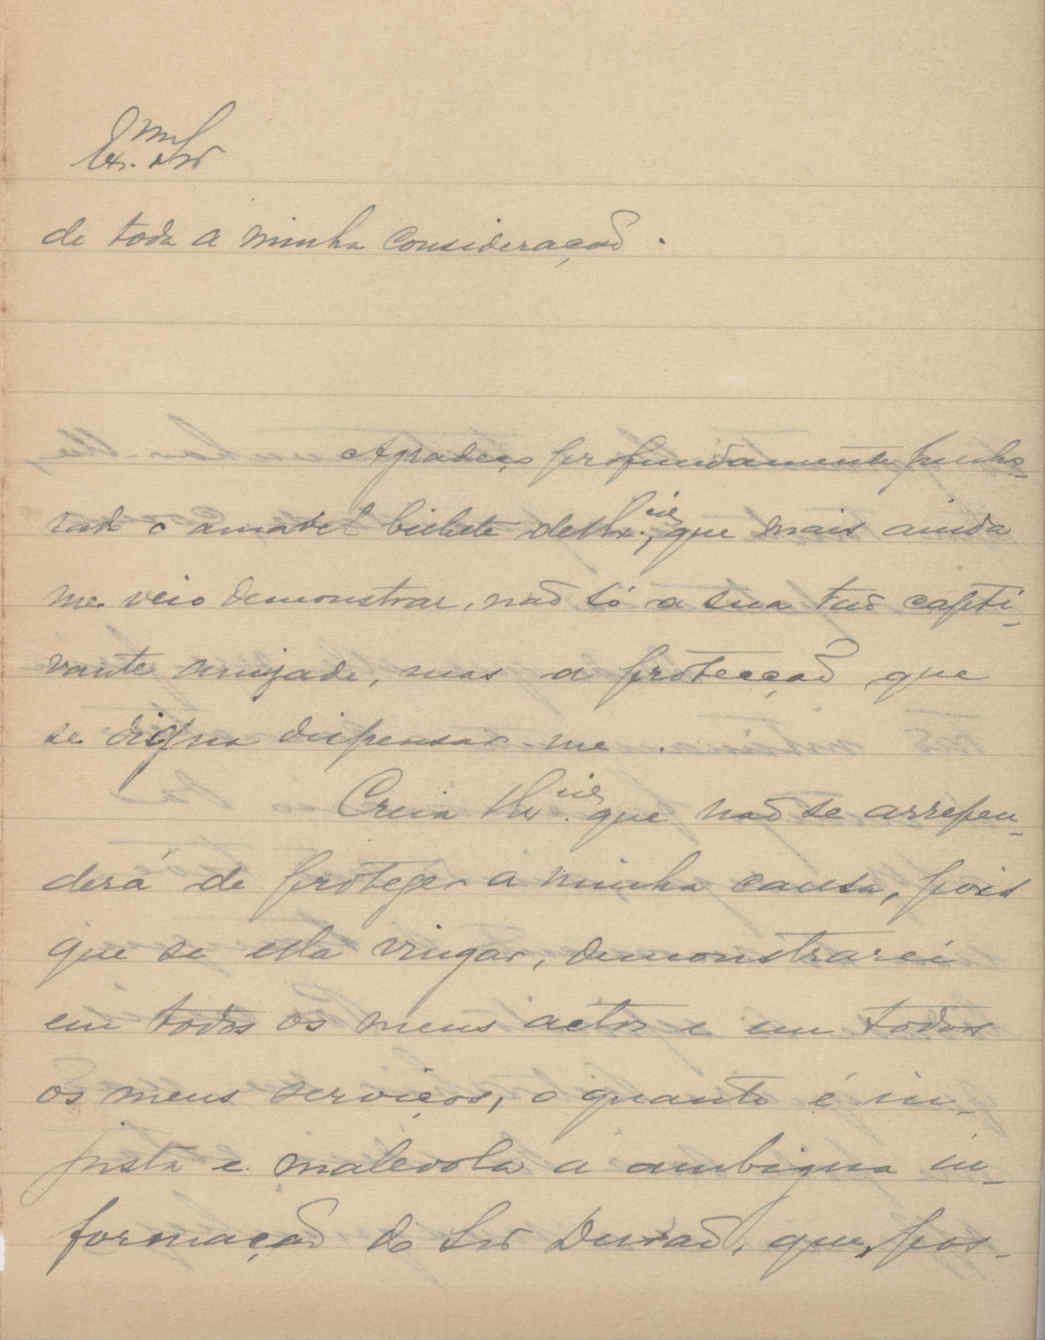 Ex.mo Snr
de toda a minha consideração.
Agradeço profundamente penho-
rado o amavel bilhete de V. Ex.cia, que mais ainda
me veio demonstrar, não só a sua tão capti-
vante amizade, mas a protecção que
se digna dispensar-me.
Creia V. Ex.cia que não se arrepen-
derá de proteger a minha causa, pois
que se ella vingar, demonstrarei
em todos os meus actos e em todos
os meus serviços, o quanto é in-
justa e malevola a ambigua in-
formação do Snr Durão, que, pos-